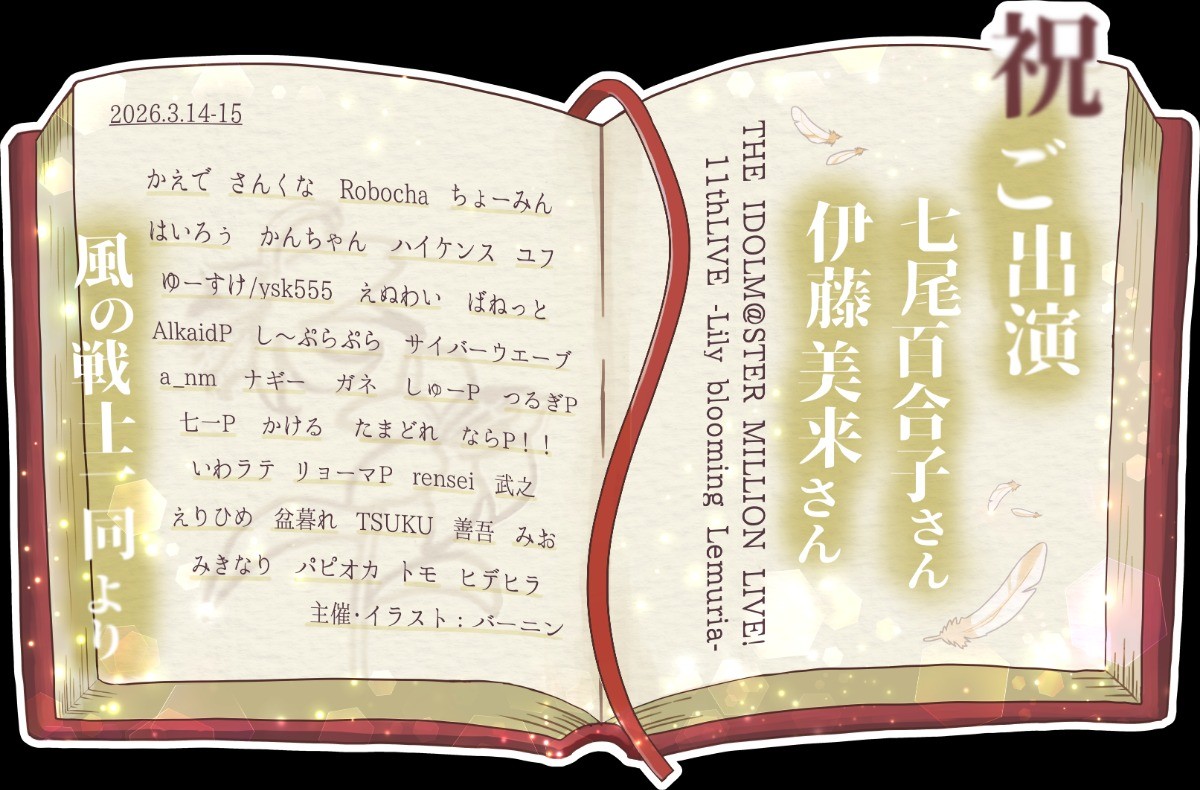 祝
ご出演
七尾百合子さん
伊藤美来さん
THE IDOLM@STER MILLION LIVE!
11thLIVE -Lily blooming Lemuria-
2026.3.14-15
かえで さんくな Robocha ちょーみん
はいろぅ かんちゃん ハイケンス ユフ
ゆーすけ/ysk555 えぬわい ばねっと
AlkaidP し～ぷらぷら サイバーウエーブ
a_nm ナギー ガネ しゅーP つるぎP
七一P かける たまどれ ならP！！
いわラテ リョーマP rensei 武之
えりひめ 盆暮れ TSUKU 善吾 みお
みきなり パピオカ トモ ヒデヒラ
主催･イラスト：バーニン
風の戦士一同より